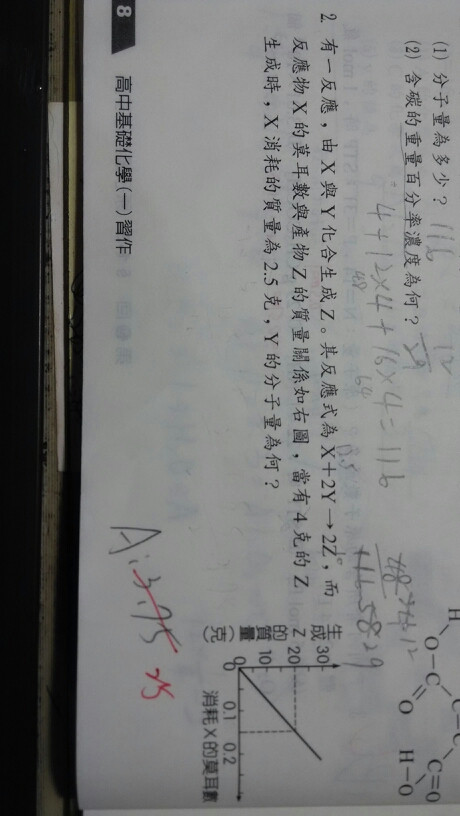 (1) 分子量為多少？ 116
(2) 含碳的重量百分率濃度為何？ 12
29
4+12×4+16×4=116
48
64
2. 有一反應，由X與Y化合生成Z。其反應式為X+2Y→2Z，而
反應物X的莫耳數與產物Z的質量關係如右圖，當有4克的Z
生成時，X消耗的質量為2.5克，Y的分子量為何？
A:3.75
25
H
O-C
O
C=O
H-O
生成Z的質量(克)
30
20
10
0
0.1
0.2
消耗X的莫耳數
8
高中基礎化學(一)習作